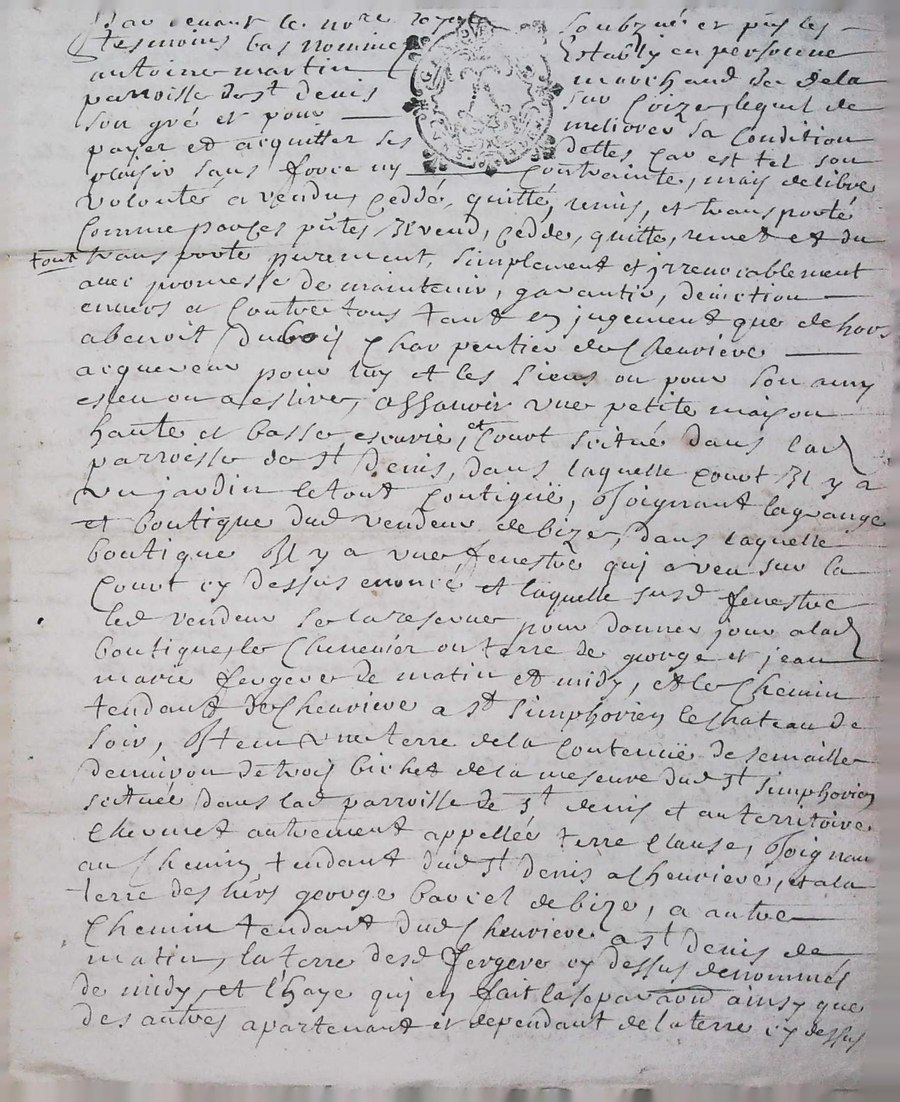 Par devant le no.re royal soubzné et pñs les
tesmoins bas nommes Establi en personne
antoine martin marchand de dela
parroisse de st denis sur Coize, lequel de
son gré et pour meliorer sa Condition
payer et acquitter ses debtes Car est tel son
plaisir sans force ny Contrainte, mais de libre
volonté a vendu, ceddé, quitté, remis, et transporté
Comme par ces pñtes Il vend, cedde, quitte, remet et du
tout transporte purement, simplement et irrevocablement
avec promesse de maintenir, garantir, deviction
envers et Contre tous tant en jugement que dehors
a benoit Duboij Charpentier de Chevriere
acquereur pour luy et les siens ou pour son amy
esleu ou a eslire, assavoir une petite maison
haute et basse, escurie, et Court scitué dans lad
parroisse de st Denis, dans laquelle court Il y a
un jardin le tout contiguë, Joignant la grange
et boutique dud vendeur de bize, dans laquelle
boutique Il y a une fenestre qui a veu sur la
Court cy dessus enoncé et laquelle susd fenestre
led vendeur se la reserve pour donner jour a lad
boutique, le Chenevier ou terre de george et jean
marie fergere de matin et midy, et le Chemin
tendant de Chevriere a st simphorien le chateau de
soir, Item une terre de la Contenüe de semaille
denviron de trois bichet de la mesure dud st simphorien
scituée dans lad parroisse de st denis et au territoire
Chermet autrement appellée terre Clause, Joignan
au Chemin tendant dud st denis a Chevriere, et a la
terre des hérs george bariel de bize, a autre
Chemin tendant dud Chevriere a st Denis de
matin, la terre desd fergere cy dessus denommés
de midy, et l'haye qui en fait la separaõn ainsy que
des autres apartenant et dependant de la terre cy dessus